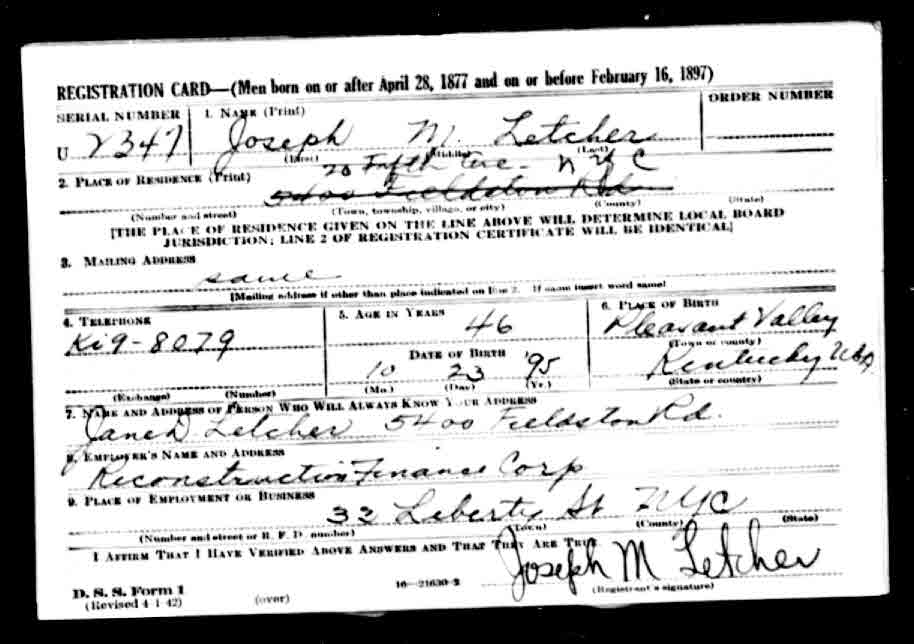 REGISTRATION CARD—(Men born on or after April 28, 1877 and on or before February 16, 1897)
SERIAL NUMBER
1. NAME (Print)
ORDER NUMBER
U 2347
Joseph M. Letcher
(First) (Middle) (Last)
20 Fifth Ave - N Y C
2. PLACE OF RESIDENCE (Print)
5400 Fieldston Rd
(Number and street) (Town, township, village, or city) (County) (State)
[THE PLACE OF RESIDENCE GIVEN ON THE LINE ABOVE WILL DETERMINE LOCAL BOARD
JURISDICTION; LINE 2 OF REGISTRATION CERTIFICATE WILL BE IDENTICAL]
3. MAILING ADDRESS
same
[Mailing address if other than place indicated on line 2. If same insert word same]
4. TELEPHONE
Ki9-8079
(Exchange) (Number)
5. AGE IN YEARS
46
DATE OF BIRTH
10 23 '95
(Mo.) (Day) (Yr.)
6. PLACE OF BIRTH
Pleasant Valley
(Town or county)
Kentucky USA
(State or country)
7. NAME AND ADDRESS OF PERSON WHO WILL ALWAYS KNOW YOUR ADDRESS
Letcher 5400 Fieldston Rd.
8. EMPLOYER'S NAME AND ADDRESS
Reconstruction Finance Corp
9. PLACE OF EMPLOYMENT OR BUSINESS
33 Liberty St NYC
(Number and street or R. F. D. number) (Town) (County) (State)
I AFFIRM THAT I HAVE VERIFIED ABOVE ANSWERS AND THAT THEY ARE TRUE
Joseph M Letcher
D. S. S. Form 1
(Revised 4-1-42)
(over)
16—21630-2
(Registrant's signature)